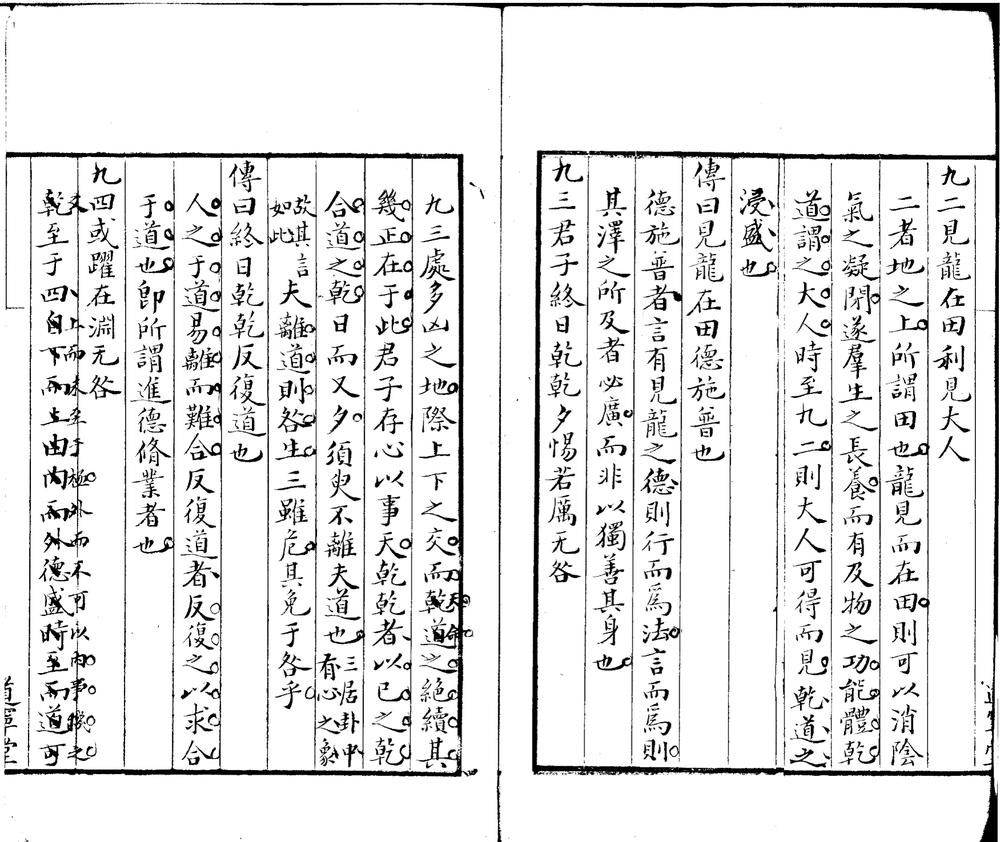 九二見龍在田利見大人
二者地之上所謂田也龍見而在田則可以消陰
氣之凝閉遂羣生之長養而有及物之功能體乾
道謂之大人時至九二則大人可得而見乾道之
浸盛也
傳曰見龍在田德施普也
德施普者言有見龍之德則行而爲法言而爲則
其澤之所及者必廣而非以獨善其身也
九三君子終日乾乾夕惕若厲无咎
九三處多凶之地際上下之交而乾道之絕續其
天命
幾正在于此君子存心以事天乾乾者以已之乾
合道之乾日而又夕須臾不離夫道也三居卦中有心之象
故其言如此夫離道則咎生三雖危其免于咎乎
傳曰終日乾乾反復道也
人之于道易離而難合反復道者反復之以求合
于道也卽所謂進德脩業者也
九四或躍在淵无咎
上而未至于極外而不可以內事機之
乾至于四自下而上由內而外德盛時至而道可
道寧堂